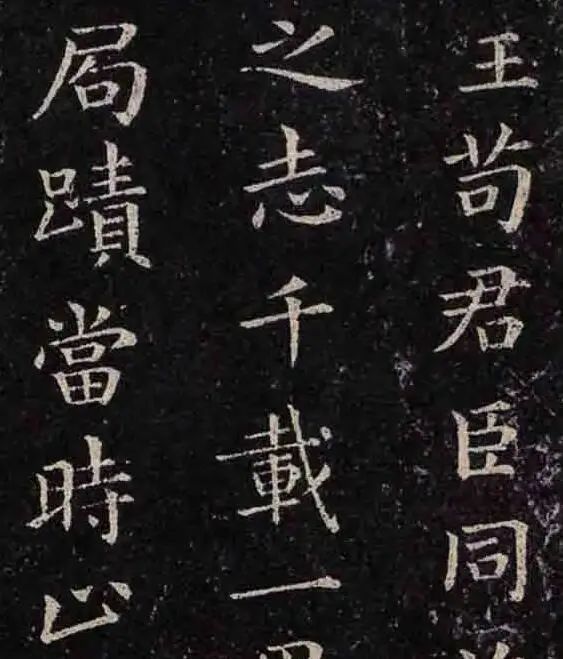 王苟君臣同
之志千載一
局蹟當時止